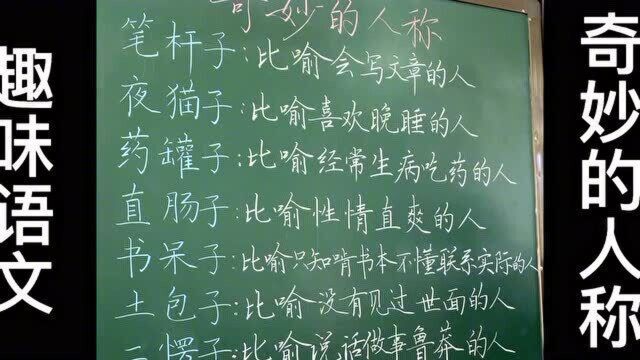 趣味语文
奇妙的人称
笔杆子:比喻会写文章的人
夜猫子:比喻喜欢晚睡的人
药罐子:比喻经常生病吃药的人
直肠子:比喻性情直爽的人
书呆子:比喻只知啃书本不懂联系实际的人
土包子:比喻没有见过世面的人
二愣子:比喻说话做事鲁莽的人
奇妙的人称